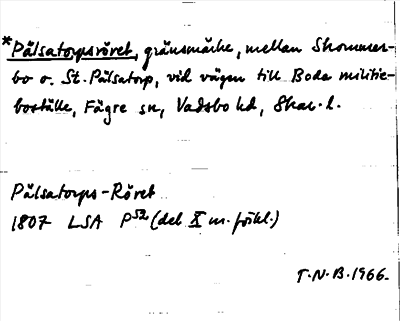 *Pålsatorpsröret, gränsmärke, mellan Skommer-
bo o. St. Pålsatorp, vid vägen till Boda militie-
boställe, Fägre sn, Vadsbo hd, Skar. l.
Pålsatorps-Röret
1807 LSA P52 (del X m. förkl.)
T.N.B. 1966.